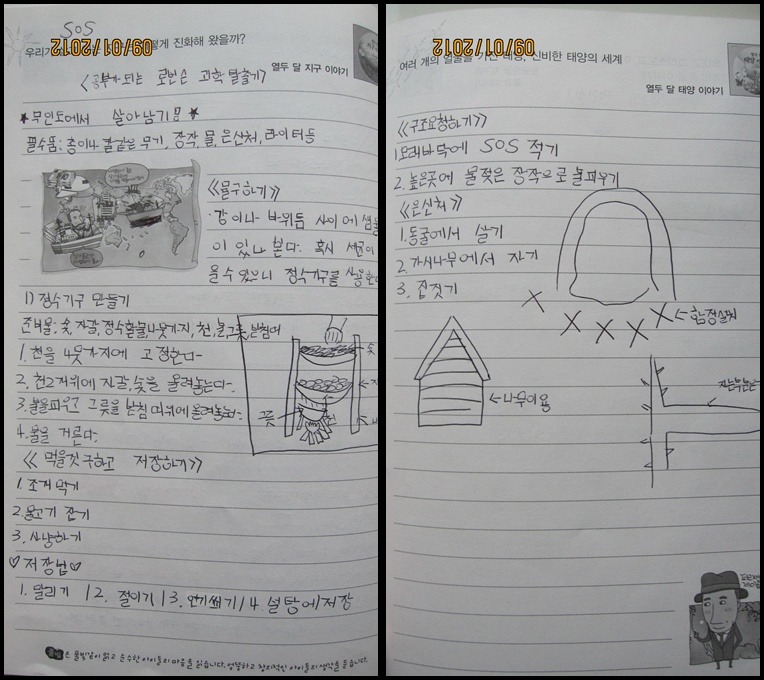 SOS
우리가 떻게 진화해 왔을까?
09/01/2012
열두 달 지구 이야기
<공부가 되는 로빈슨 과학 탈출기>
★무인도에서 살아남기!! ★
필수품: 총이나 칼같은 무기, 장작, 물, 은신처, 라이터등
《물구하기》
·강이나 바위틈 사이에 샘물
이 있나 본다. 혹시 세균이
있을수 있으니 정수기구를 사용한다
1) 정수기구 만들기
준비물: 숯, 자갈, 정수할물, 나뭇가지, 천, 불, 그릇, 받침대
1. 천을 4뭇가지에 고정한다-
2. 천2개위에 자갈, 숯을 올려놓는다-
3. 불을피우고 그릇을 받침대위에올려놓는다.
4. 물을 거른다.
←숯
그릇
천
《 먹을것 구하고 저장하기》
1. 조개 먹기
2. 물고기 잡기
3. 사냥하기
♡저장법♡
1. 말리기 / 2. 절이기 / 3. 연기쐐기 / 4. 설탕에저장
은 물빛같이 맑고 순수한 아이들의 마음을 읽습니다. 엉뚱하고 창의적인 아이들의 생각을 듣습니다.
09/01/2012
여러 개의 얼굴을 가진 태양, 신비한 태양의 세계
열두 달 태양 이야기
《구조요청하기》
1. 모래바닥에 SOS 적기
2. 높은곳에 물젖은 장작으로 불피우기
《은신처》
1. 동굴에서 살기
2. 가시나무에서 자기
3. 집짓기
X X X X X ←함정설치
←나무이용
자는부분